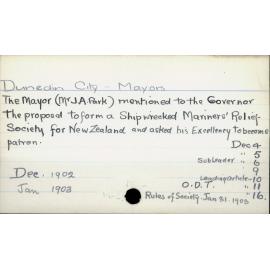 Dunedin City - Mayor
The Mayor (Mr J.A. Park) mentioned to the Governor
The proposal to form a Shipwrecked Mariners' Relief
Society for New Zealand and asked his Excellency to become
patron.
Dec 4
" 5
Subleader " 6
" 9
Dec. 1902
Leading article - 10
Jan 1903
O.D.T. " 11
" 16
Rules of Society. Jan 31. 1903